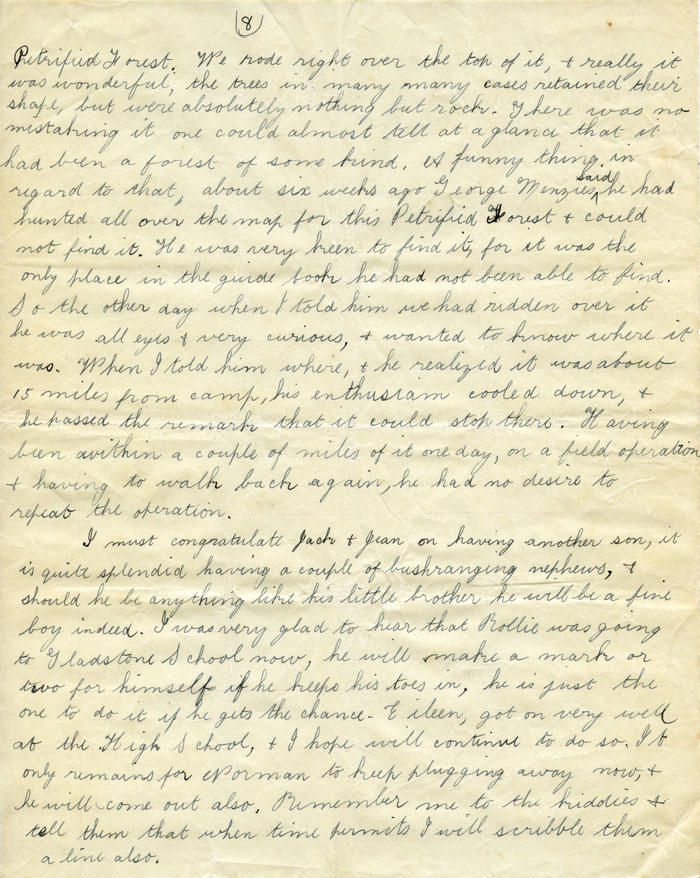 8
Petrified Forest. We rode right over the top of it, & really it
was wonderful, the trees in many many cases retained their
shape, but were absolutely nothing but rock. There was no
mistaking it one could almost tell at a glance that it
had been a forest of some kind. A funny thing in
regard to that, about six weeks ago George Menzies said he had
hunted all over the map for this Petrified Forest & could
not find it. He was very keen to find it, for it was the
only place in the guide book he had not been able to find.
So the other day when I told him we had ridden over it
he was all eyes & very curious, & wanted to know where it
was. When I told him where, & he realized it was about
15 miles from camp, his enthusiam cooled down, &
he passed the remark that it could stop there. Having
been within a couple of miles of it one day, on a field operation
& having to walk back again, he had no desire to
repeat the operation.
I must congratulate Jack & Jean on having another son, it
is quite splendid having a couple of bushranging nephews, &
should he be anything like his little brother he will be a fine
boy indeed. I was very glad to hear that Rollie was going
to Gladstone School now, he will make a mark or
two for himself if he keeps his toes in, he is just the
one to do it if he gets the chance. Eileen, got on very well
at the High School, & I hope will continue to do so. It
only remains for Norman to keep plugging away now, &
he will come out also. Remember me to the kiddies &
tell them that when time permits I will scribble them
a line also.